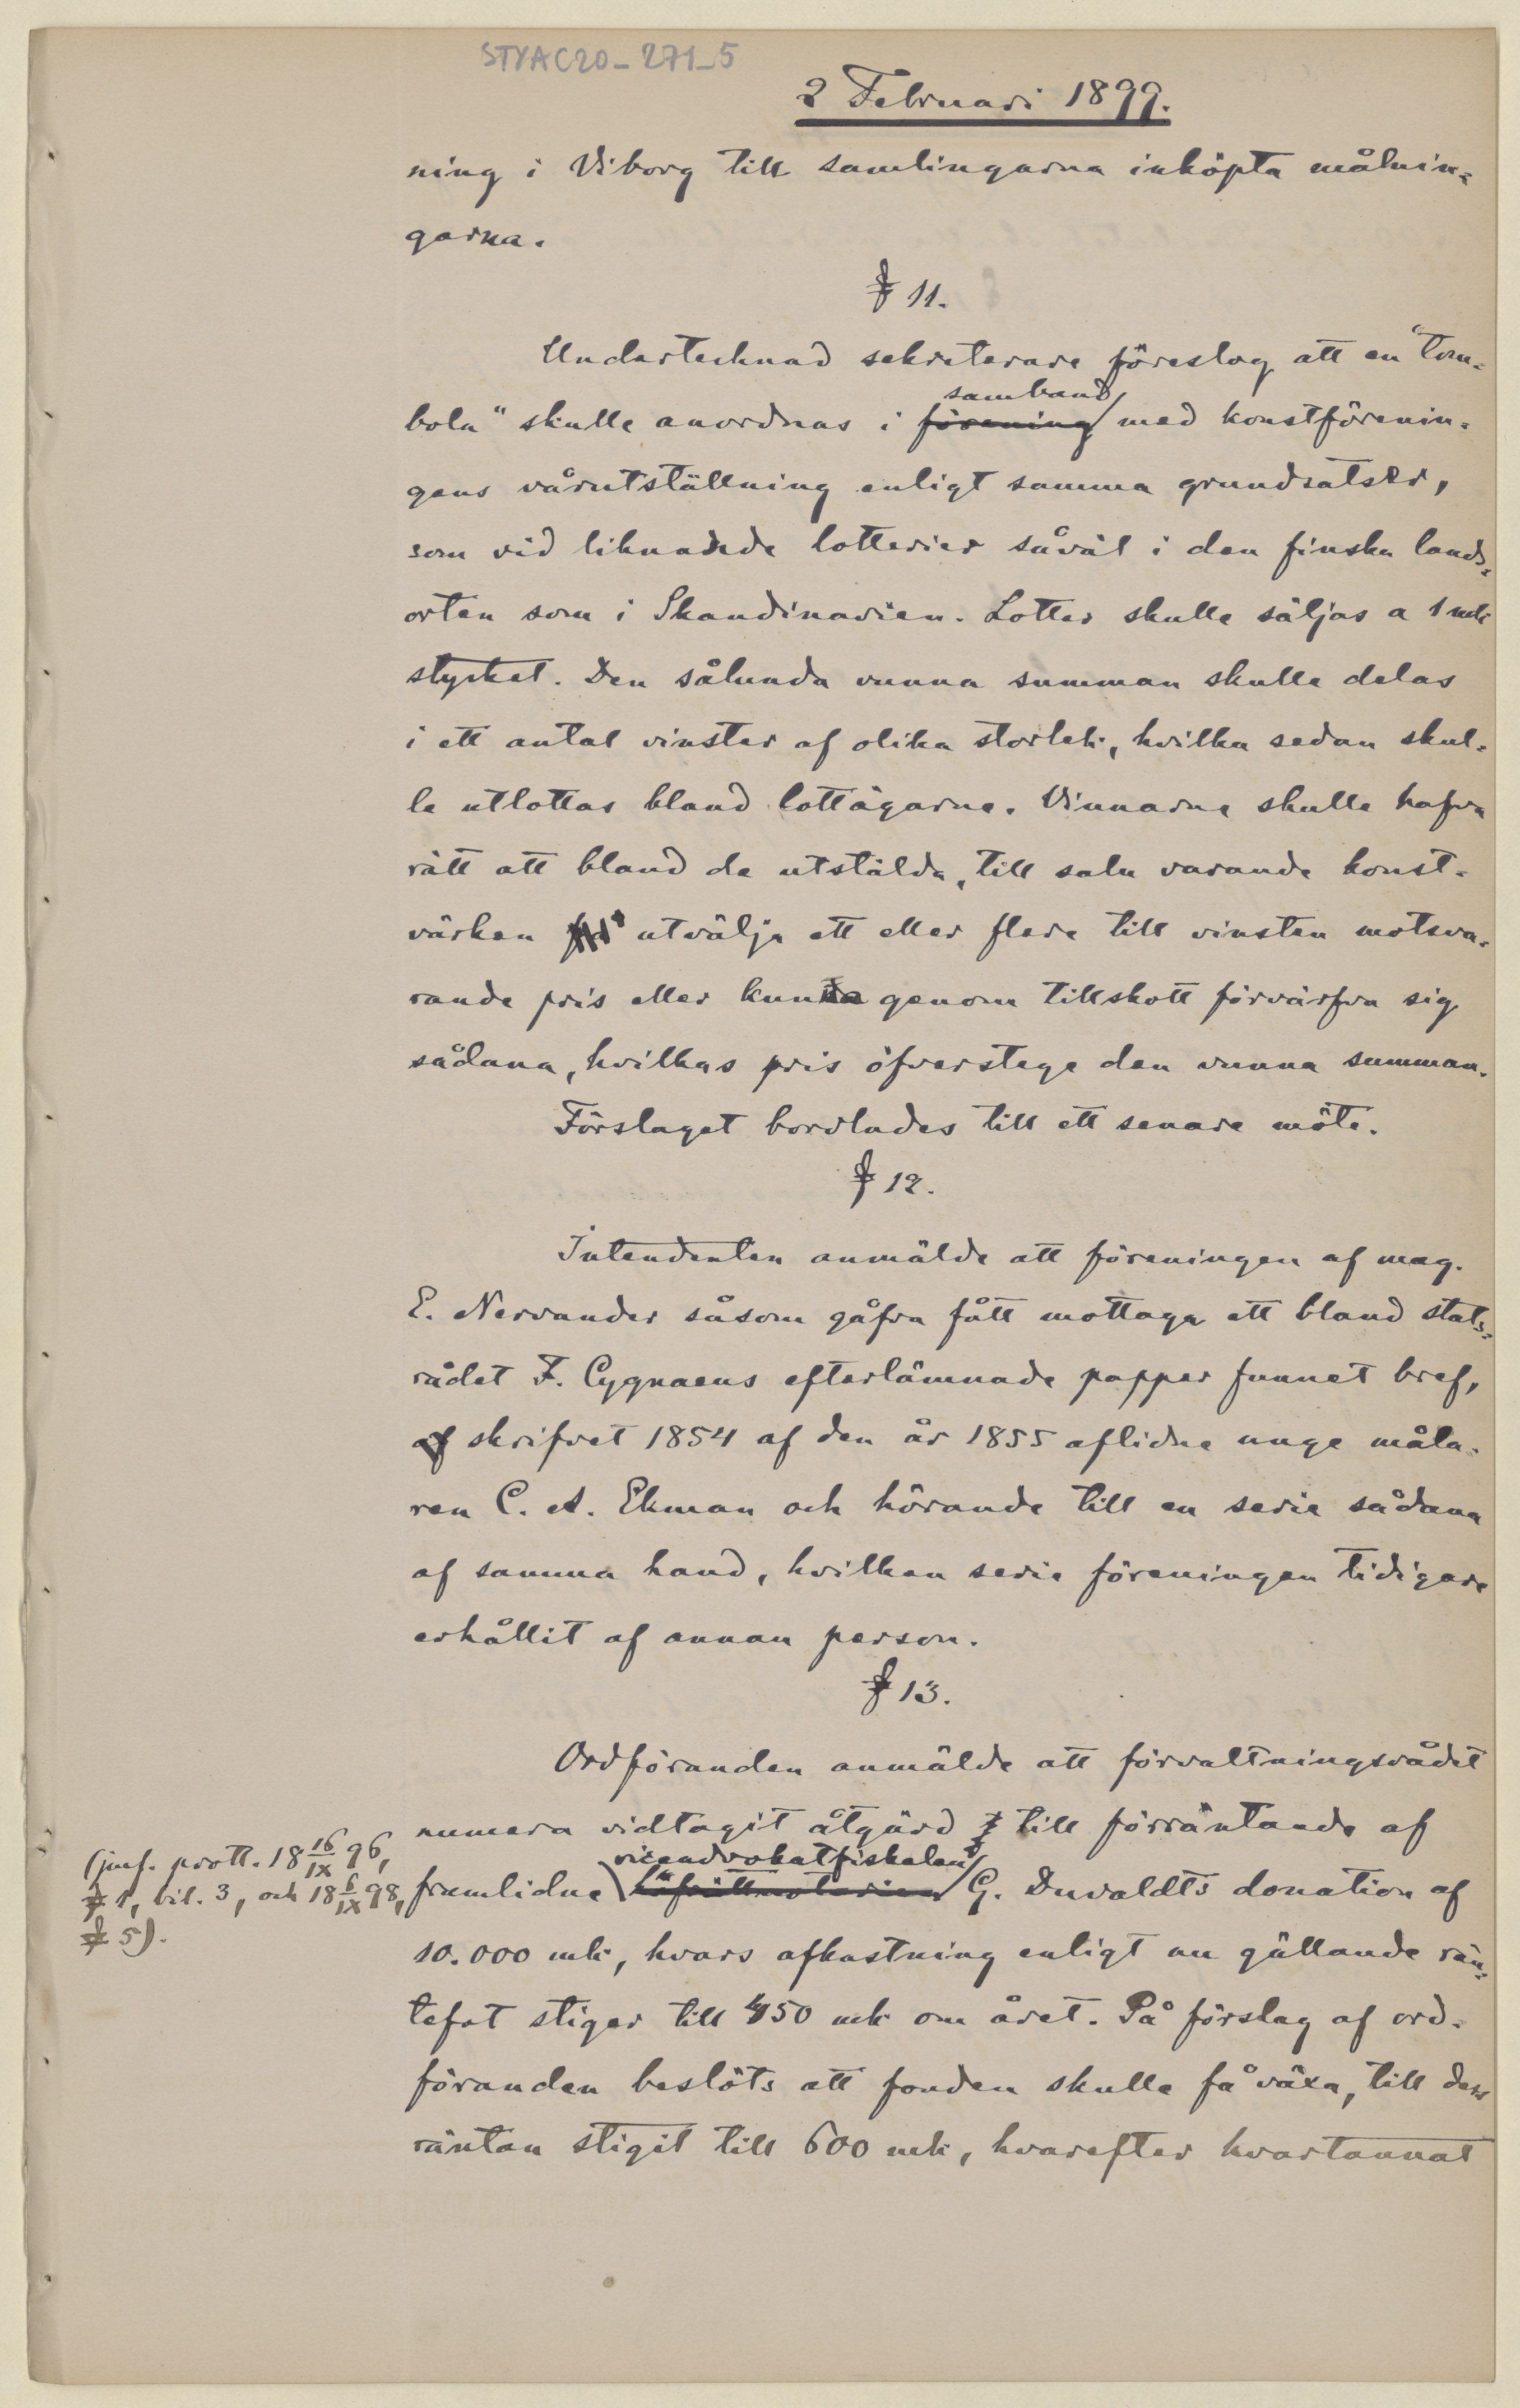 STYAC20_271_5
2 Februari 1899.
ning i Viborg till samlingarna inköpta målnin-
garna.
§ 11.
Undertecknad sekreterare föreslog att en "tom-
bola" skulle anordnas i förening samband med konstförenin-
gens vårutställning enligt samma grundsatser,
som vid liknande lotterier såväl i den finska lands-
orten som i Skandinavien. Lotter skulle säljas a 1 mk
stycket. Den sålunda vunna summan skulle delas
i ett antal vinster af olika storlek, hvilka sedan skul-
le utlottas bland lottägarne. Vinnarne skulle hafva
rätt att bland de utstälda, till salu varande konst-
värken utvälja ett eller flere till vinsten motsva-
rande pris eller kunna genom tillskott förvärfva sig
sådana, hvilkas pris öfverstege den vunna summan.
Förslaget bordlades till ett senare möte.
§ 12.
Intendenten anmälde att föreningen af mag.
E. Nervander såsom gåfva fått mottaga ett bland stats-
rådet F. Cygnaeus efterlämnade papper funnet bref,
af skrifvet 1854 af den år 1855 aflidne unge måla-
ren C. A. Ekman och hörande till en serie sådana
af samma hand, hvilken serie föreningen tidigare
erhållit af annan person.
§ 13.
Ordföranden anmälde att förvaltningsrådet
numera vidtagit åtgärd till förräntande af
framlidne häfrättsnotarien vicendvokatfiskalen G. Duvaldts donation af
10.000 mk, hvars afkastning enligt nu gällande rän-
tefot stiger till 450 mk om året. På förslag af ord-
föranden beslöts att fonden skulle få växa, till dess
räntan stigit till 600 mk, hvarefter hvartannat
(jmf. protk. 18 16/IX 96,
§ 1, bil. 3, och 18 6/IX 98,
§ 5).